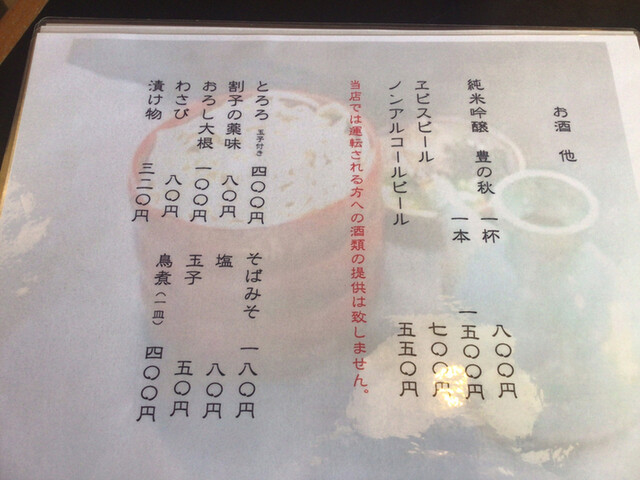 お酒 他
純米吟醸 豊の秋 一杯 八〇〇円
一本 一五〇〇円
ヱビスビール 七〇〇円
ノンアルコールビール 五五〇円
当店では運転される方への酒類の提供は致しません。
とろろ 玉子付き 四〇〇円
割子の薬味 八〇円
おろし大根 一〇〇円
わさび 八〇円
漬け物 三二〇円
そばみそ 一八〇円
塩 八〇円
玉子 五〇円
鳥煮(一皿) 四〇〇円